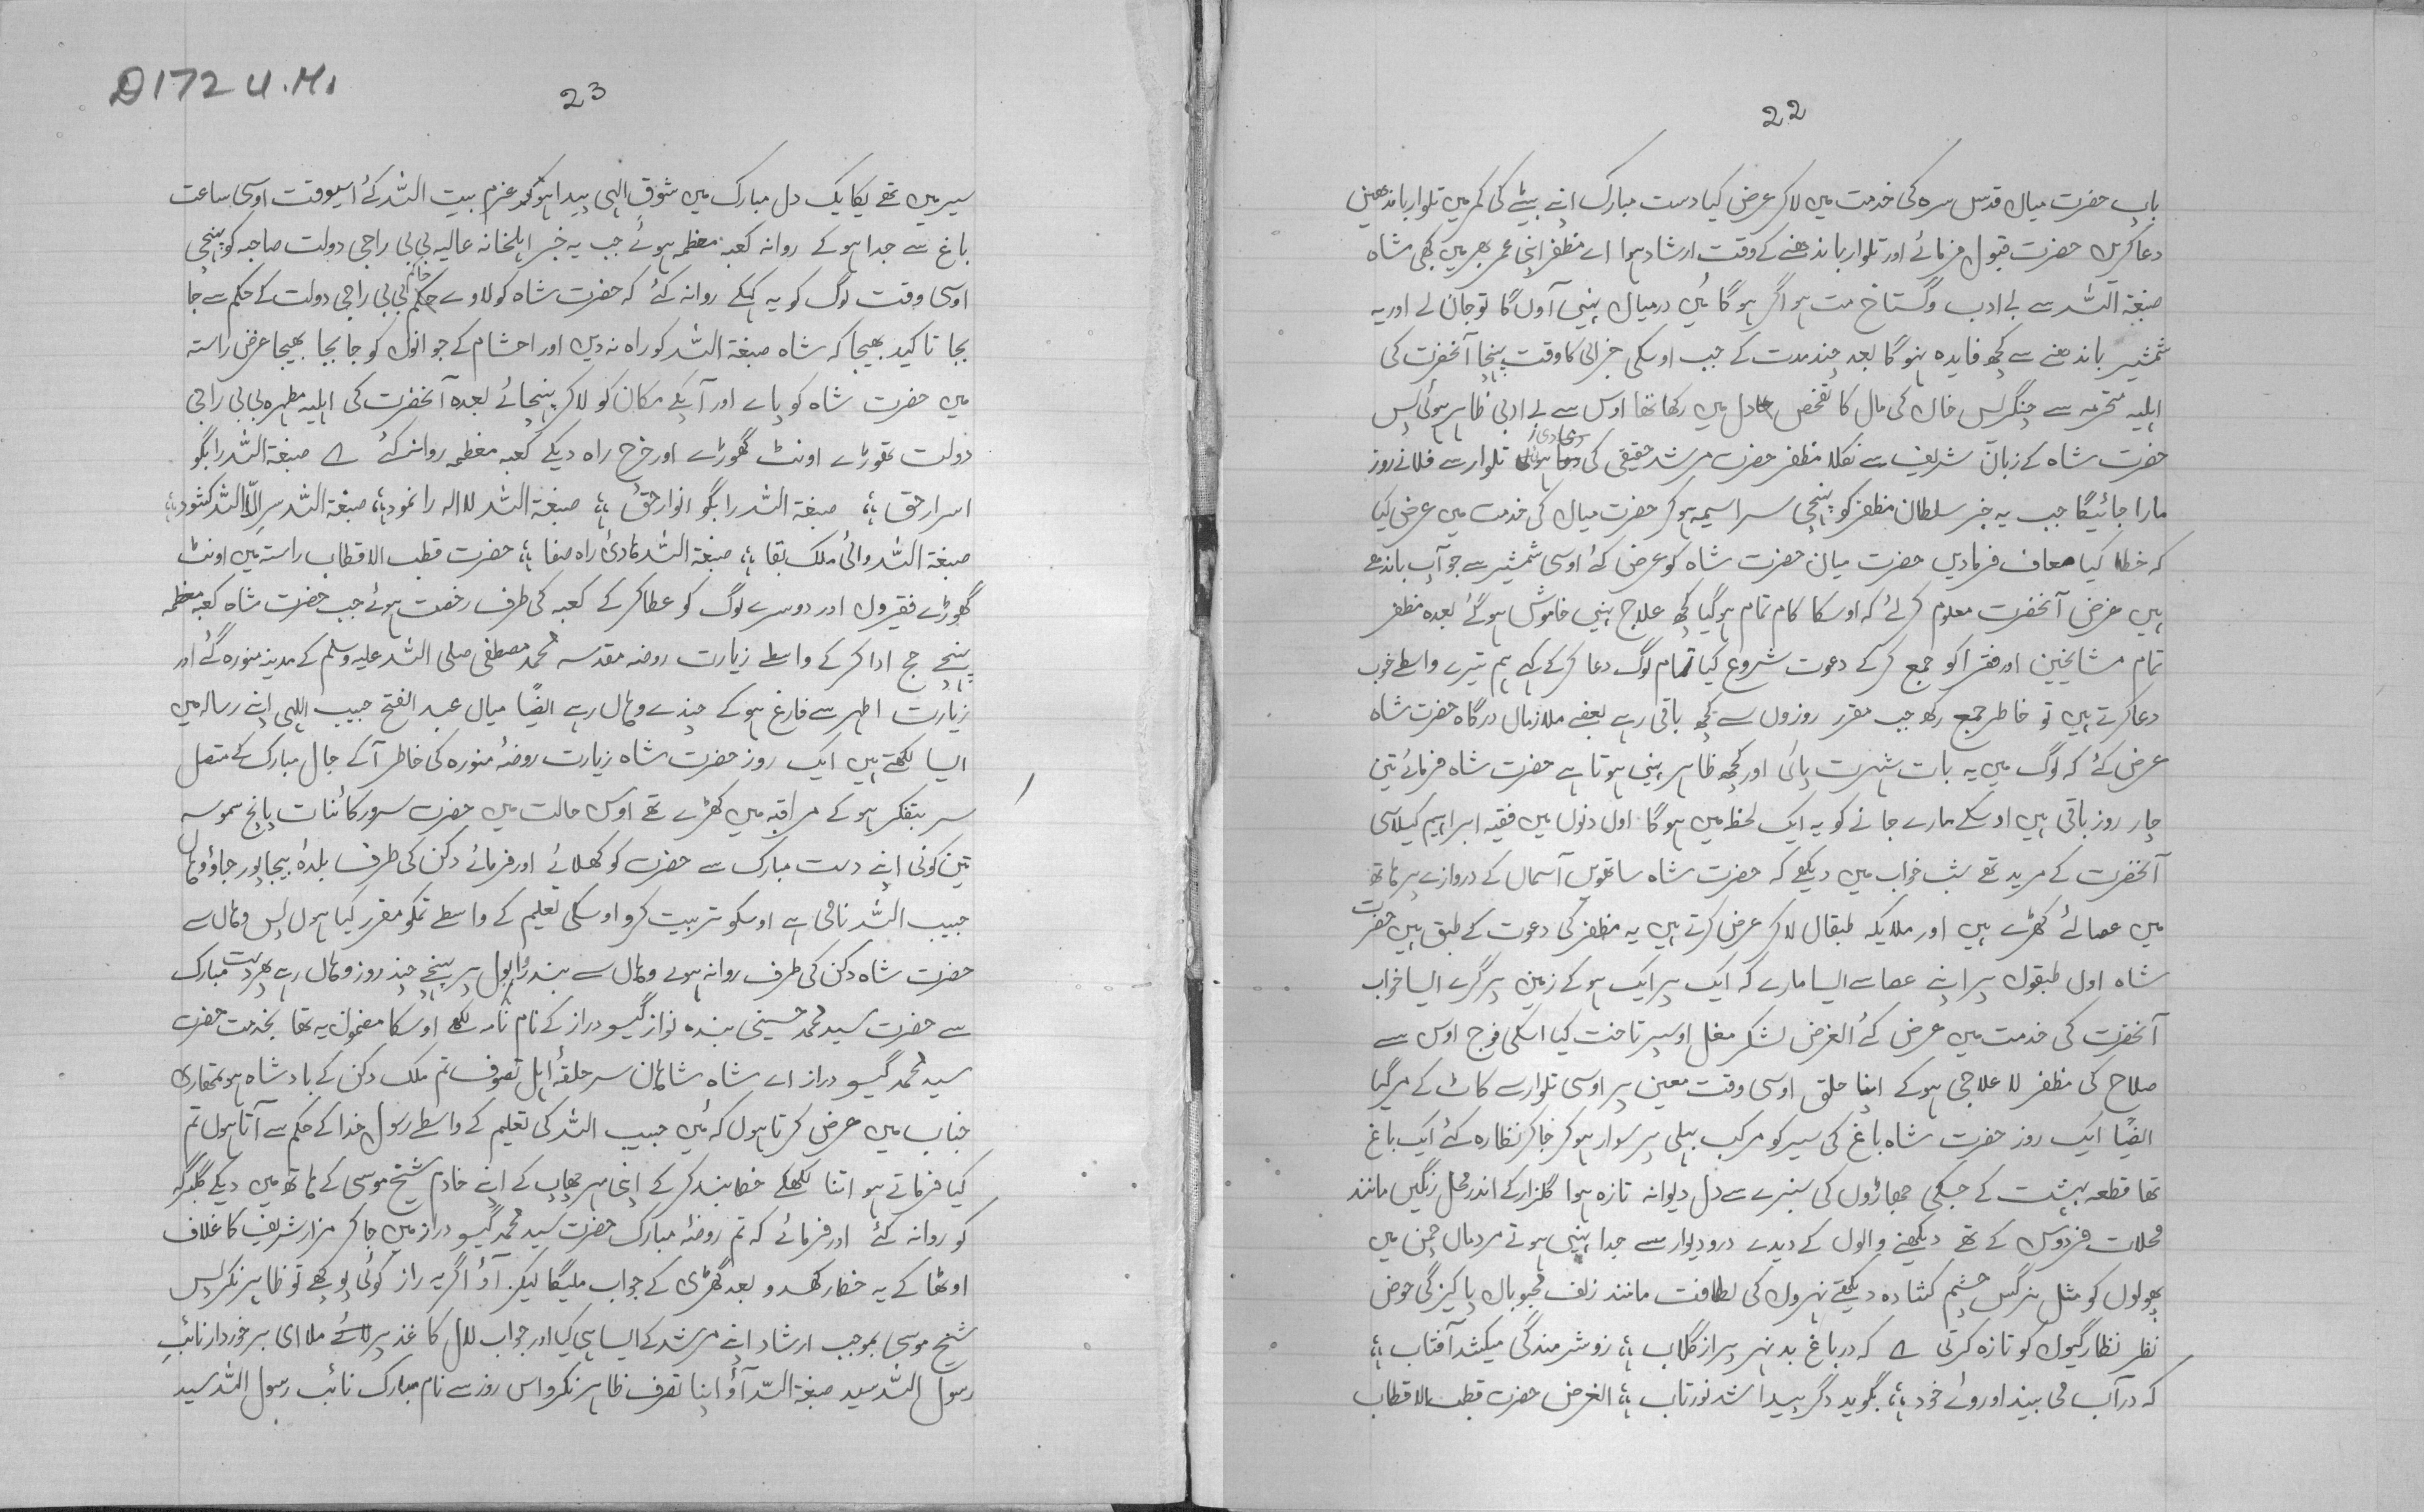 22
باپ حضرت میاں قدس سرہ کی خدمت میں لاکر عرض کیا دست مبارک اپنے بیٹے کی کمر میں تلوار باندھیں
دعا کریں حضرت قبول فرمائے اور تلوار باندھنے کے وقت ارشاد ہوا اے مظفر اپنی عمر بھر میں کبھی شاہ
صبغۃ اللہ سے بے ادب و گستاخ مت ہو اگر ہوگا میں درمیاں نہیں آوں گا تو جان لے اور یہ
شمشیر باندھنے سے کچھ فایدہ نہوگا بعد چند مدت کے جب اوسکی خرابی کا وقت پہنچا آنحضرت کی
اہلیہ محترمہ سے چنگز خاں کی مال کا تفحص دل میں رکھا تھا اوس سے بے ادبی ظاہر ہوئی پس
حضرت شاہ کے زبان شریف سے نکلا مظفر حضرت مرشد حقیقی کی تلوار سے فلانے روز
مارا جائیگا جب یہ خبر سلطان مظفر کو پہنچی سراسیمہ ہوکر حضرت میاں کی خدمت میں عرض کیا
کہ خطا کیا معاف فرمادیں حضرت میان حضرت شاہ کو عرض کئے اوسی شمشیر سے جو آپ باندھے
ہیں غرض آنحضرت معلوم کرلئے کہ اوسکا کام تمام ہوگیا کچھ علاج نہیں خاموش ہوگئے بعدہ مظفر
تمام مشایخین اور فقرا کو جمع کرکے دعوت شروع کیا تمام لوگ دعا کرکے کہے ہم تیرے واسطے خوب
دعا کرتے ہیں تو خاطر جمع رکھ جب مقرر روزوں سے کچھ باقی رہے بعضے ملازمان درگاہ حضرت شاہ
عرض کئے کہ لوگ میں یہ بات شہرت پائی اور کچھ ظاہر نہیں ہوتا ہے حضرت شاہ فرمائے تین
چار روز باقی ہیں اوسکے مارے جانے کو یہ ایک لحظہ میں ہوگا اول دنوں میں فقیہ ابراہیم گیلاسی
آنحضرت کے مرید تھے شب خواب میں دیکھے کہ حضرت شاہ ساتویں آسمان کے دروازے پر ہاتھ
میں عصا لئے کھڑے ہیں اور ملایکہ طبقاں لاکر عرض کرتے ہیں یہ مظفر کی دعوت کے طبق ہیں حضرت
شاہ اول طبقوں پر اپنے عصا سے ایسا مارے کہ ایک پر ایک ہوکے زمین پر گرے ایسا خواب
آنحضرت کی خدمت میں عرض کئے الغرض لشکر مغل اوسپر تاخت کیا اسکی فوج اوس سے
صلاح کی مظفر لاعلاجی ہوکے اپنا حلق اوسی وقت معین پر اوسی تلوار سے کاٹ کے مرگیا
ایضًا ایک روز حضرت شاہ باغ کی سیر کو مرکب بہلی پر سوار ہوکر جاکر نظارہ کئے ایک باغ
تھا قطعہ بہشت کے جسکی جھاڑوں کی سبزے سے دل دیوانہ تازہ ہوا گلزار کے اندر محل رنگین مانند
محلات فردوس کے تھے دیکھنے والوں کے دیدے درودیوار سے جدا نہیں ہوتے مردمان چمن میں
پھولوں کو مثل نرگس چشم کشادہ دیکھتے نہروں کی لطافت مانند زلف محبوباں پاکیزگی حوض
نظر نظارگیوں کو تازہ کرتی ے کہ درباغ بد نہر پر از گلاب ؛؛ زو شرمندگی میکشد آفتاب ؛؛
کہ در آب می بیند او روے خود ؛؛ بگوید دگر پیدا شد نورتاب ؛؛ الغرض حضرت قطب الاقطاب
D172 U.M.
23
سیر میں تھے یکایک دل مبارک میں شوق الہی پیدا ہوکر عزم بیت اللہ کے اسیوقت اوسی ساعت
باغ سے جدا ہو کے روانہ کعبہ معظمہ ہوئے جب یہ خبر اہلخانہ عالیہ بی بی راجی دولت صاحبہ کو پہنچی
اوسی وقت لوگ کو یہ کہکے روانہ کئے کہ حضرت شاہ کو لاوے حاکم بی بی راجی دولت کے حکم سے جا
بجا تاکید بھیجا کہ شاہ صبغۃ اللہ کو راہ نہ دیں اور احشام کے جوانوں کو جا بجا بھیجا غرض راستہ
میں حضرت شاہ کو پاے اور آپکے مکان کو لاکر پہنچائے بعدہ آنحضرت کی اہلیہ مطہرہ بی بی راجی
دولت تھوڑے اونٹ گھوڑے اور خرچ راہ دیکے کعبہ معظمہ روانہ کئے ے صبغۃ اللہ را بگو
اسرار حق ؛؛ صبغۃ اللہ را بگو انوار حق ؛؛ صبغۃ اللہ لا الہ را نمود ؛؛ صبغۃ اللہ سر الّا اللہ کشود ؛؛
صبغۃ اللہ والئ ملک بقا ؛؛ صبغۃ اللہ ہادئ راہ صفا ؛؛ حضرت قطب الاقطاب راستہ میں اونٹ
گھوڑے فقیروں اور دوسرے لوگ کو عطا کرکے کعبہ کی طرف رخصت ہوئے جب حضرت شاہ کعبہ معظمہ
پہنچے حج ادا کرکے واسطے زیارت روضہ مقدسہ محمد مصطفی صلی اللہ علیہ وسلم کے مدینہ منورہ گئے اور
زیارت اطہر سے فارغ ہوکے چندے وہاں رہے ایضًا میاں عبد الفتح حبیب اللہی اپنے رسالہ میں
ایسا لکھتے ہیں ایک روز حضرت شاہ زیارت روضۂ منورہ کی خاطر آکے جال مبارک کے متصل
سر بتفکر ہو کے مراقبہ میں کھڑے تھے اوس حالت میں حضرت سرور کائنات پانچ سموسہ
تین کونی اپنے دست مبارک سے حضرت کو کھلائے اور فرمائے دکن کی طرف بلدۂ بیجاپور جاؤ وہاں
حبیب اللہ نامی ہے اوسکو تربیت کرو اوسکی تعلیم کے واسطے تمکو مقرر کیا ہوں پس وہاں سے
حضرت شاہ دکن کی طرف روانہ ہوے وہاں سے بندر دابول پر پہنچے چند روز وہاں رہے پھر دست مبارک
سے حضرت سید محمد حسینی بندہ نواز گیسو دراز کے نام نامہ لکھے اوسکا مضمون یہ تھا بخدمت حضرت
سید محمد گیسو دراز اے شاہ شاہان سر حلقۂ اہل تصوف تم ملک دکن کے بادشاہ ہو تمھاری
جناب میں عرض کرتا ہوں کہ میں حبیب اللہ کی تعلیم کے واسطے رسول خدا کے حکم سے آتا ہوں تم
کیا فرماتے ہو اتنا لکھکے خط بند کرکے اپنی مہر چھاپ کے اپنے خادم شیخ موسی کے ہاتھ میں دیکے گلبرگہ
کو روانہ کئے اور فرمائے کہ تم روضۂ مبارک حضرت سید محمد گیسو دراز میں جاکر مزار شریف کا غلاف
اوٹھا کے یہ خط رکھدو بعد گھڑی کے جواب ملیگا لیکر آؤ اگر یہ راز کوئی پوچھے تو ظاہر نکر پس
شیخ موسی بموجب ارشاد اپنے مرشد کے ایسا ہی کیا اور جواب لال کاغذ پر ملا ای برخوردار نائب
رسول اللہ سید صبغۃ اللہ آؤ اپنا تصرف ظاہر نکرو اس روز سے نام مبارک نائب رسول اللہ سید